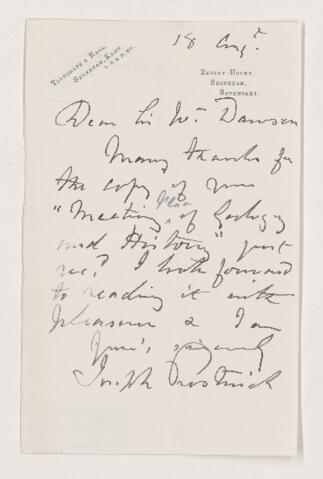 18 Augt.
Telegraph & Rail,
Shoreham, Kent.
L.C. & D. Ry.
Darent-Hulme,
Shoreham,
Sevenoaks.
Dear Sir Wm Dawson
Many thanks for
the copy of your
"Meeting place of Geology
and History" just
recd. I look forward
to reading it with
pleasure & I am
Yours sincerely
Joseph Prestwich